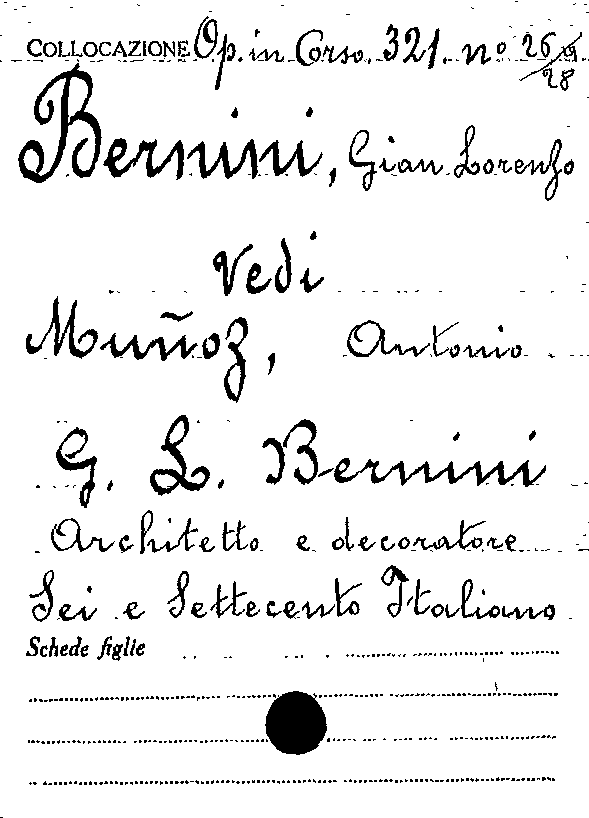 COLLOCAZIONE Op. in Corso. 321. nº 26 a/28
Bernini, Gian Lorenzo
Vedi
Muñoz, Antonio.
G. L. Bernini
Architetto e decoratore
Sei e Settecento Italiano
Schede figlie